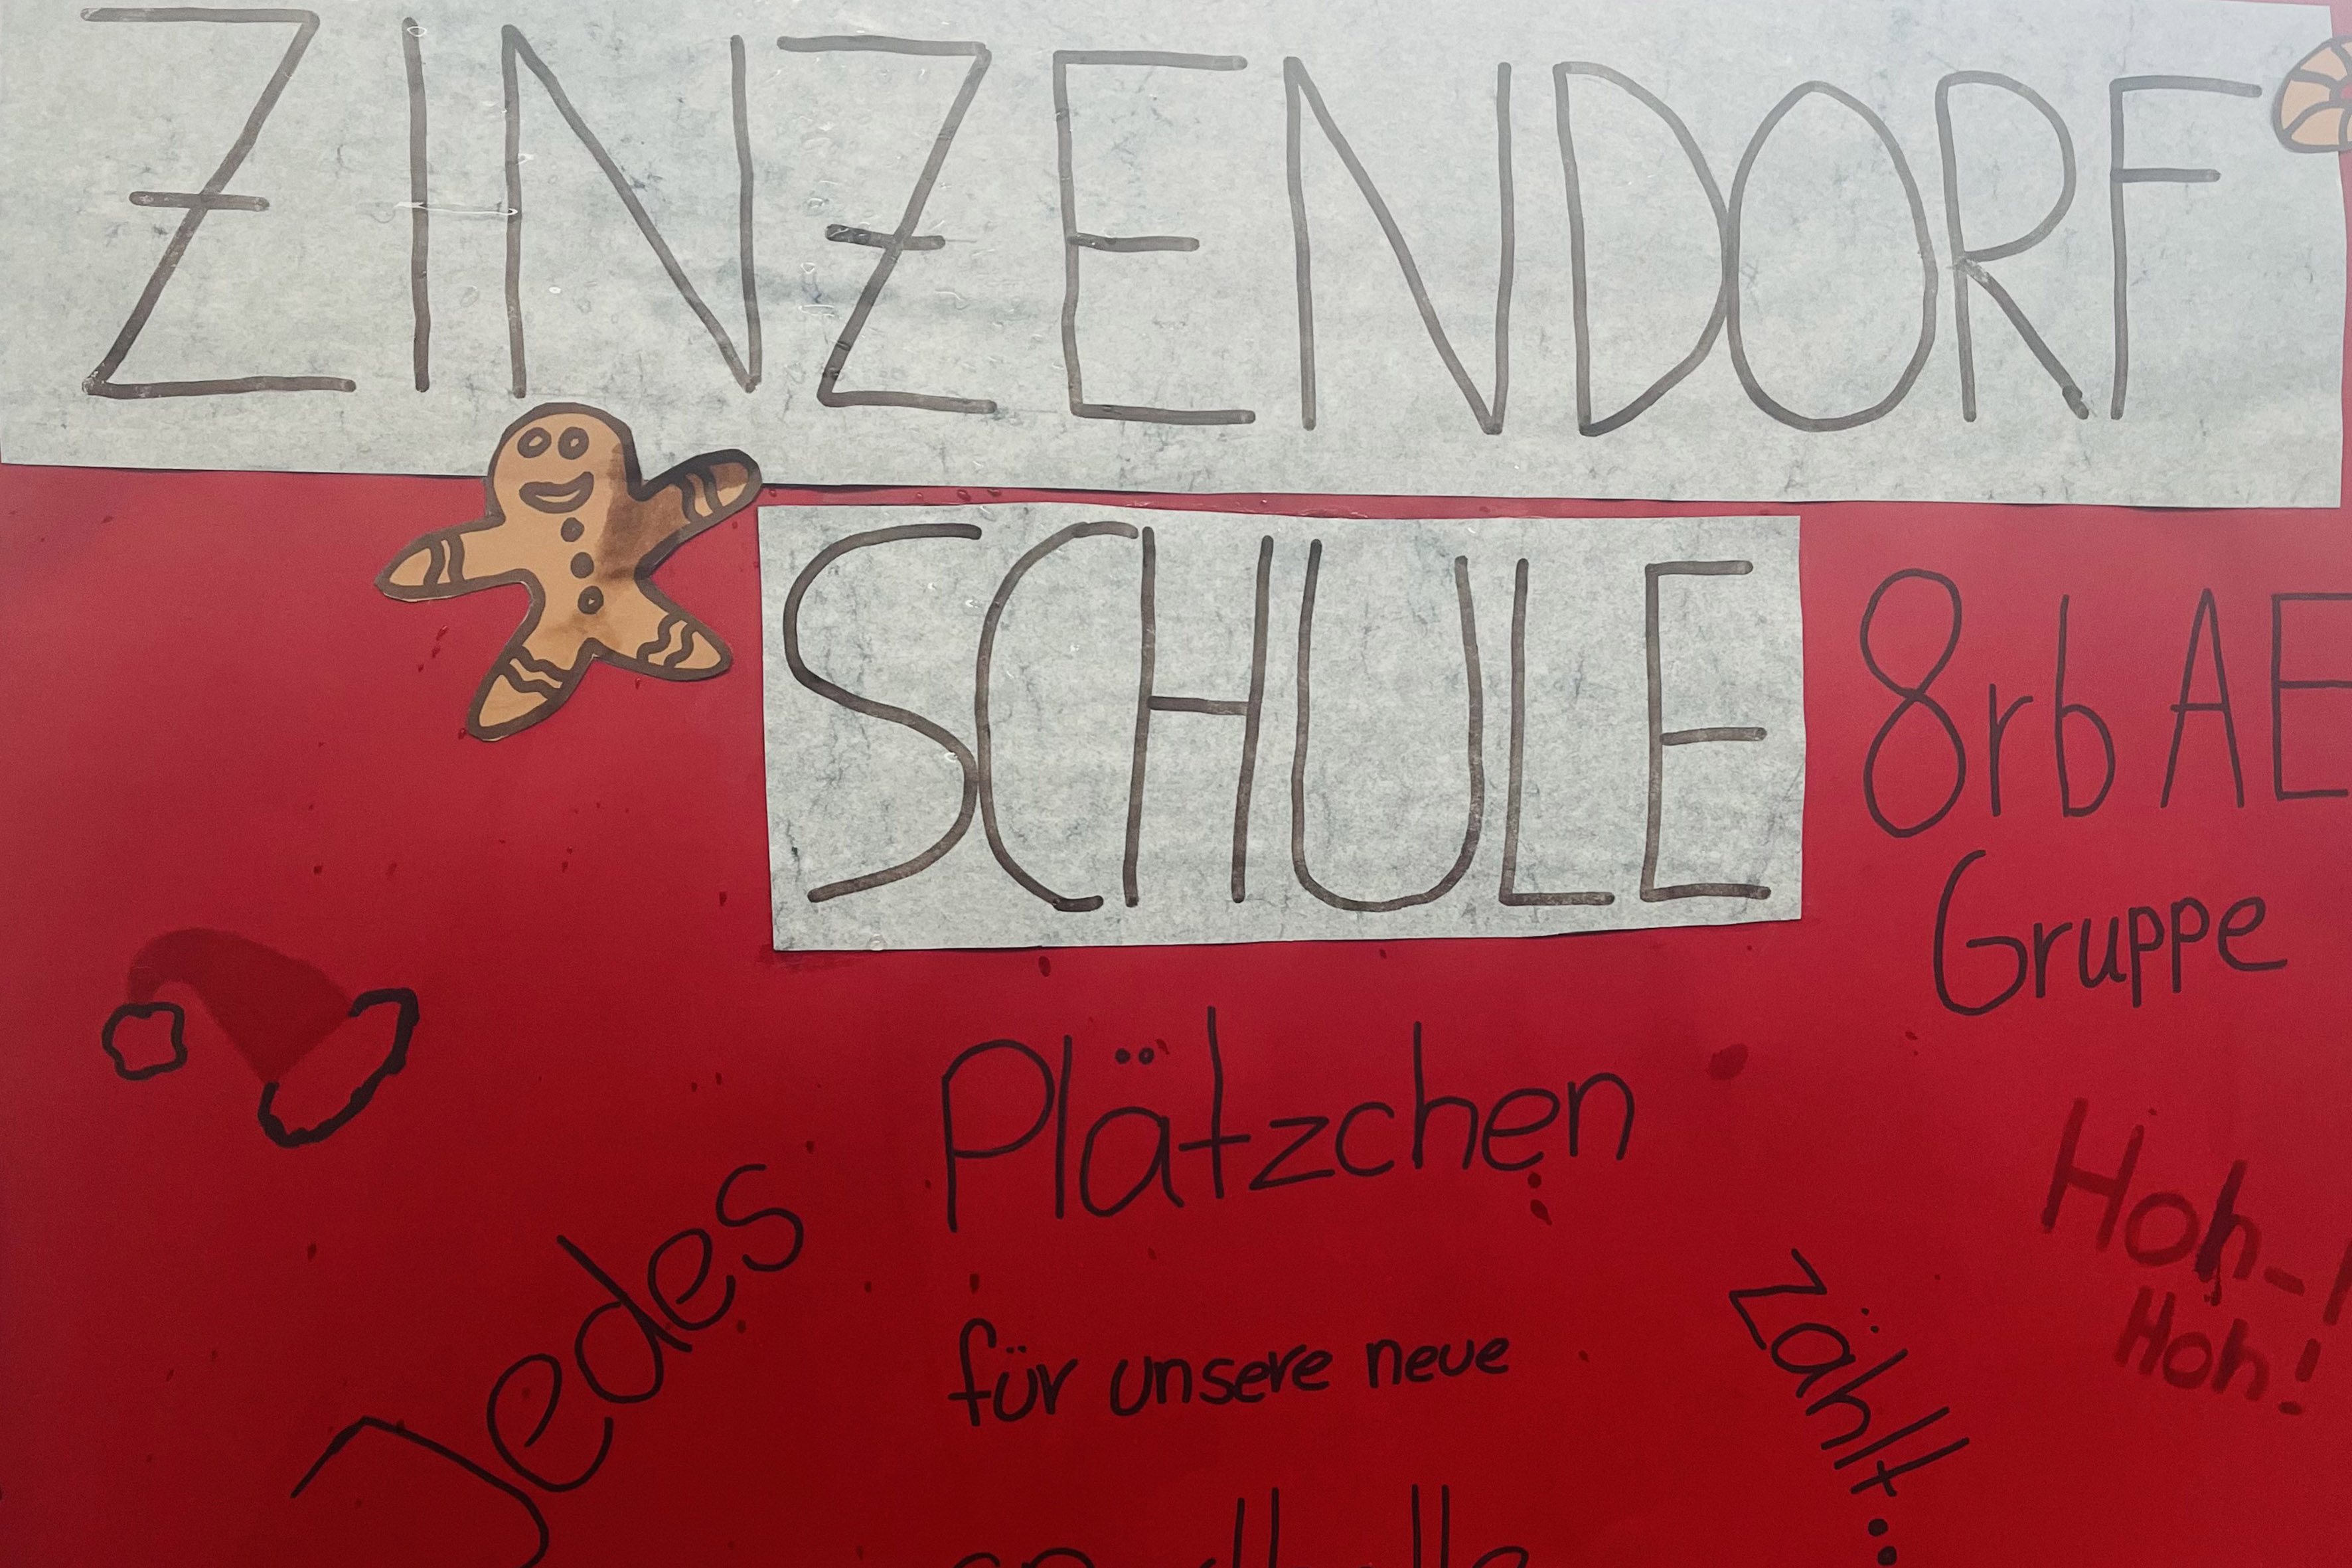 ZINZENDORF
SCHULE
8rb AE
Gruppe
Jedes
Plätzchen
zählt...
für unsere neue
Hoh-
Hoh!